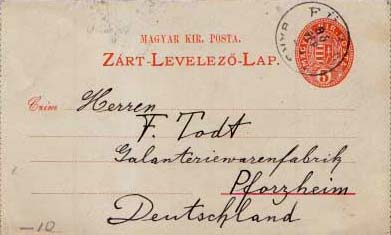 MAGYAR KIR. POSTA.
ZÁRT-LEVELEZŐ-LAP.
MAGYAR KIR. POSTA
5
Czím: Herren
F. Todt
Galanteriewarenfabrik
Pforzheim
Deutschland
—10